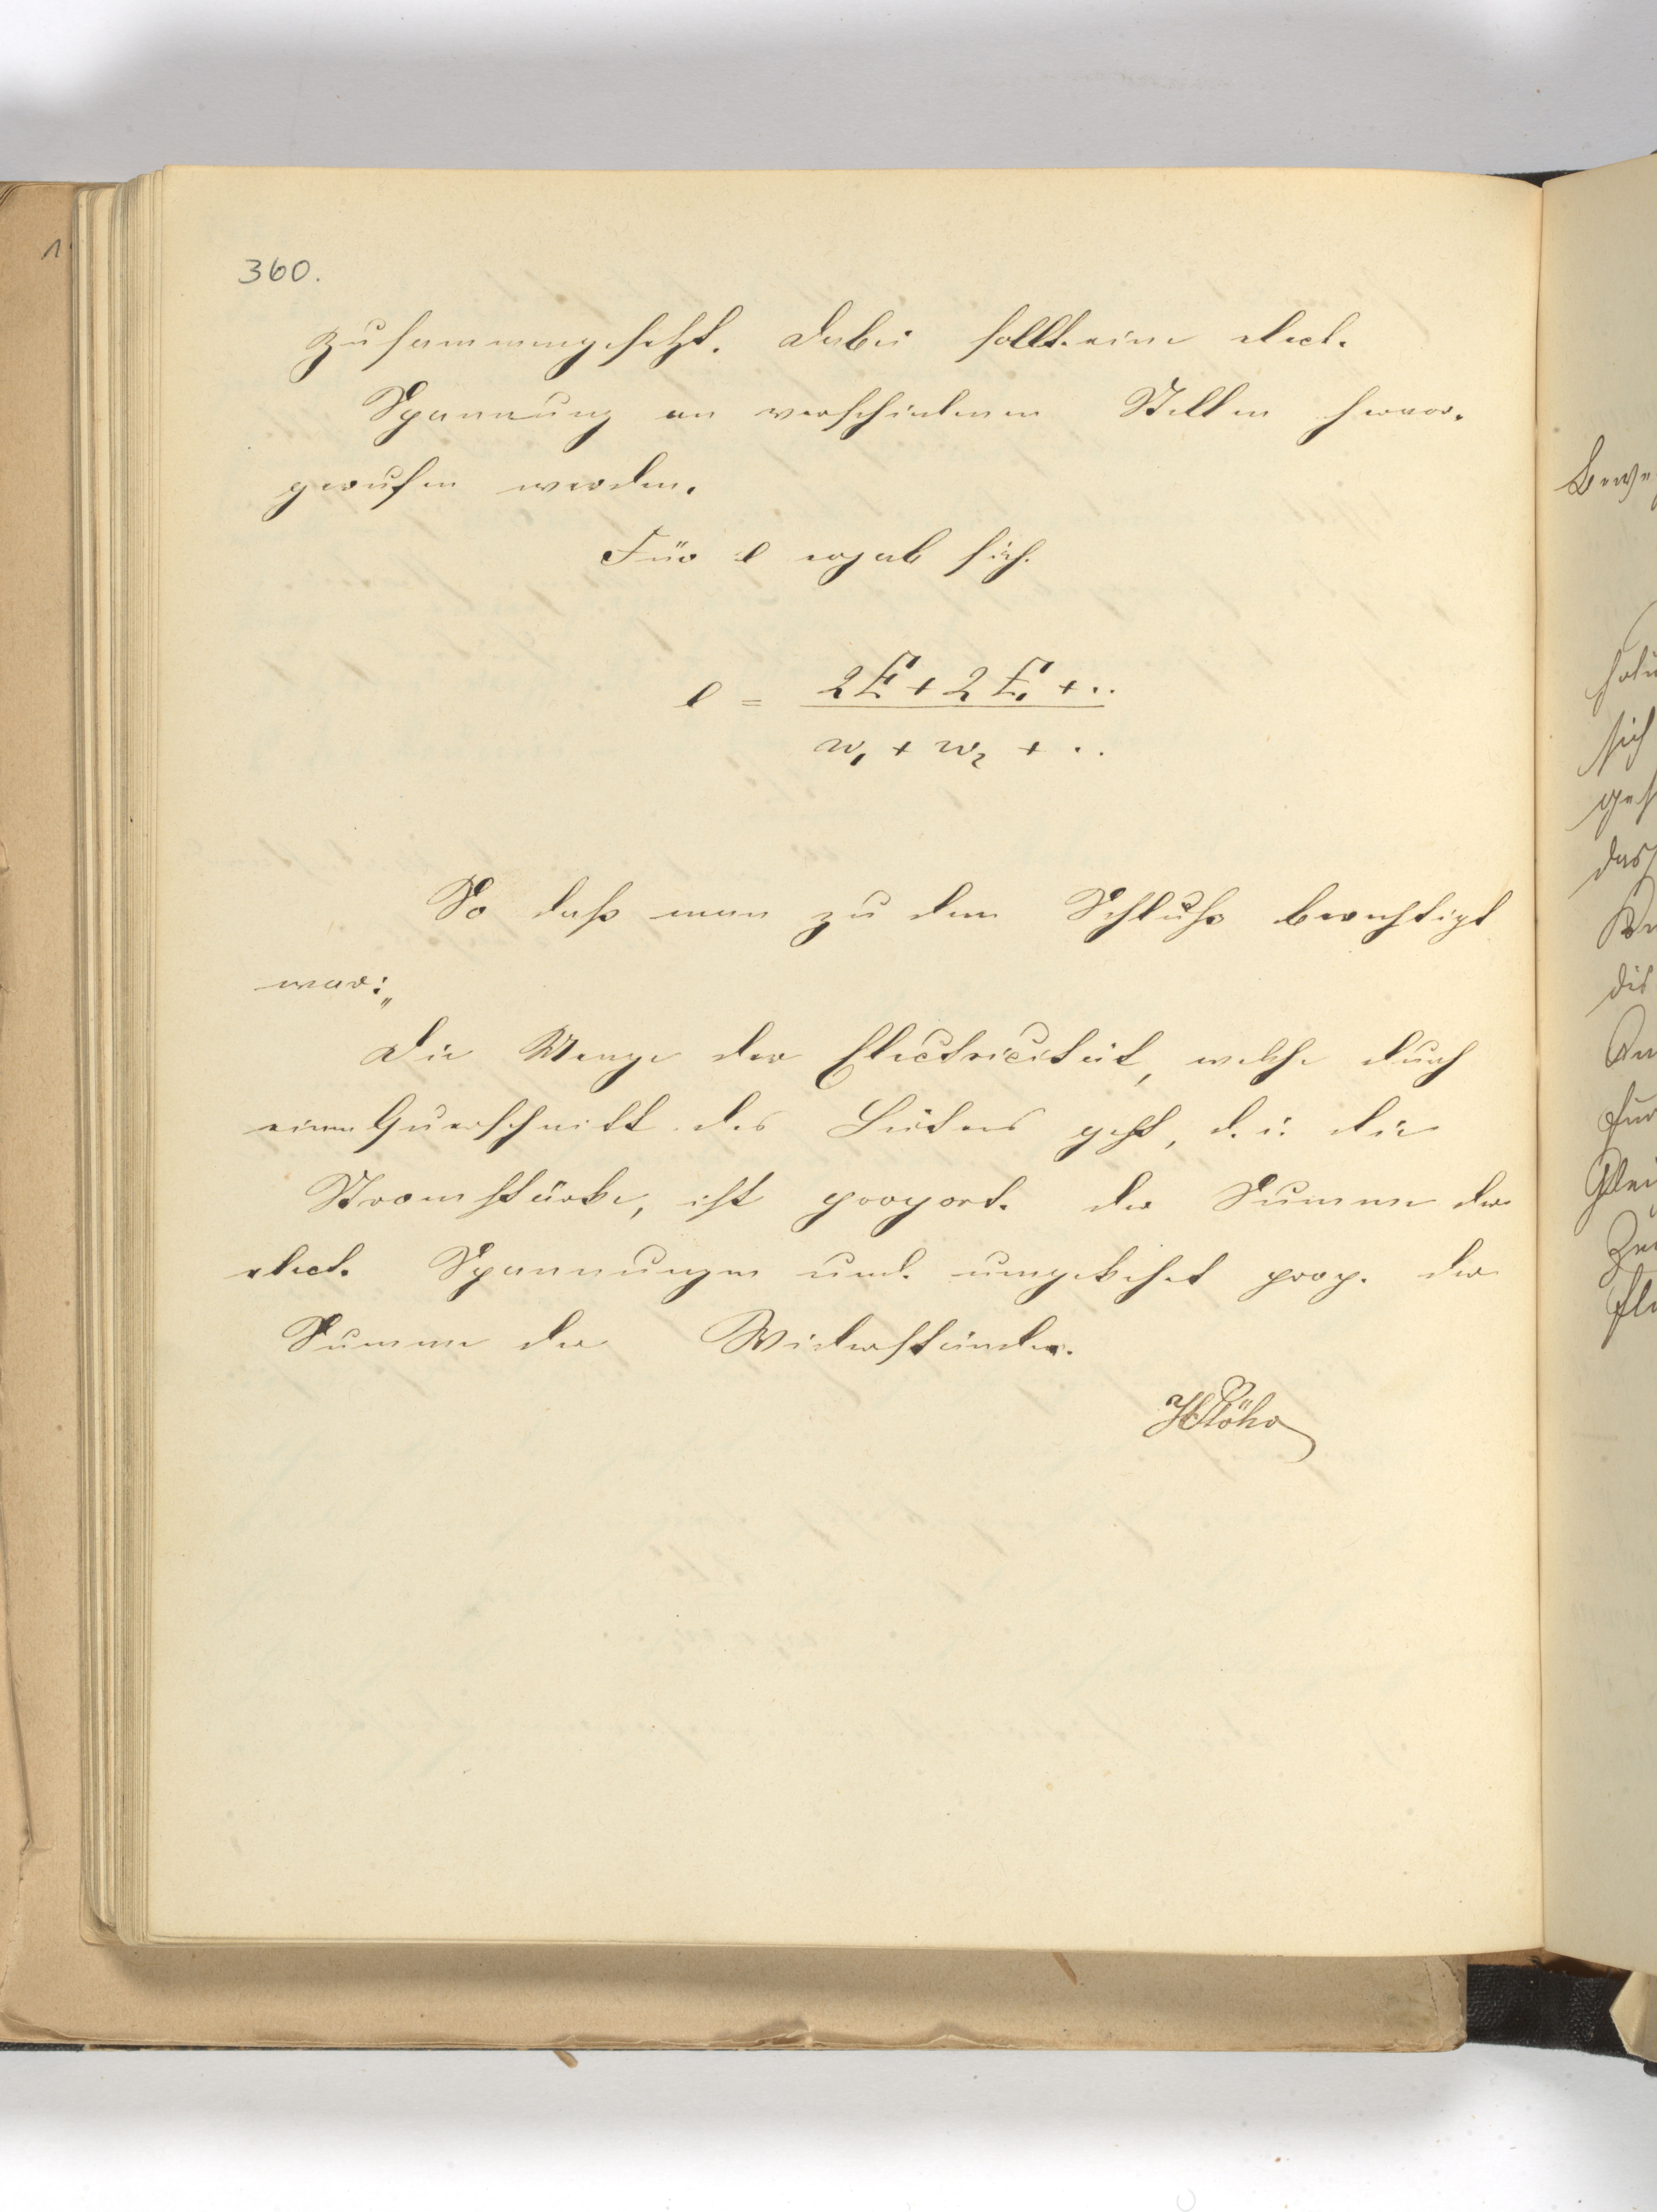 360.
zusammengesetzt. Dabei sollte eine elect.
Spannung an verschiedenen Stellen hervor-
gerufen werden.
Für e ergab sich.
e = (2E + 2E₁ + ..) / (w₁ + w₂ + ..)
So daß man zu dem Schluße berechtigt
war: „
Die Menge der Electricität, welche durch
einen Querschnitt des Leiters geht, d. i. die
Stromstärke, ist proport. der Summe der
elect. Spannungen und umgekehrt prop. der
Summe der Widerstände.